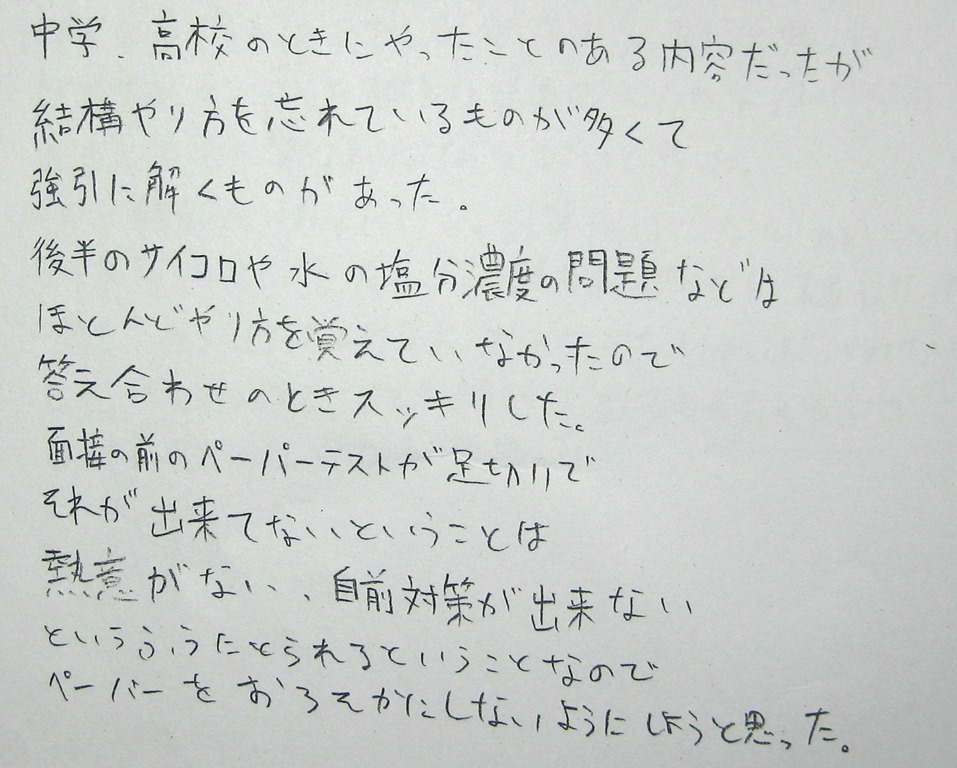 中学、高校のときにやったことのある内容だったが
結構やり方を忘れているものが多くて
強引に解くものがあった。
後半のサイコロや水の塩分濃度の問題などは
ほとんどやり方を覚えていなかったので
答え合わせのときスッキリした。
面接の前のペーパーテストが足切りで
それが出来てないということは
熱意がない、自前対策が出来ない
というふうにとられるということなので
ペーパーをおろそかにしないようにしようと思った。